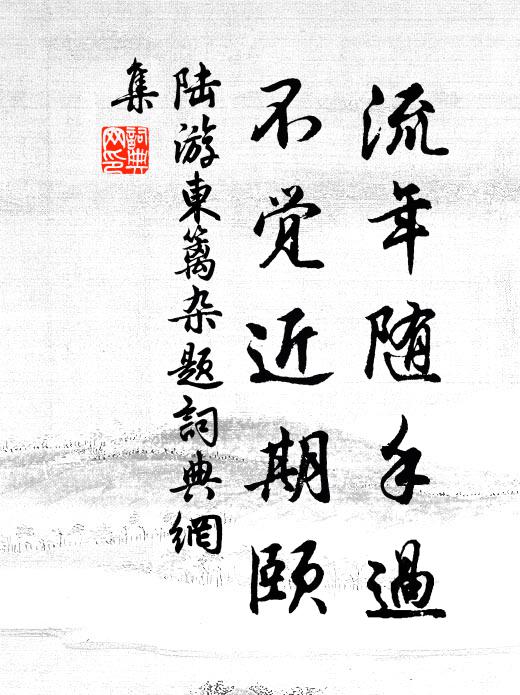 流年随手過
不觉近期颐
陆游東篱杂题詞典網
集
詞典
网印